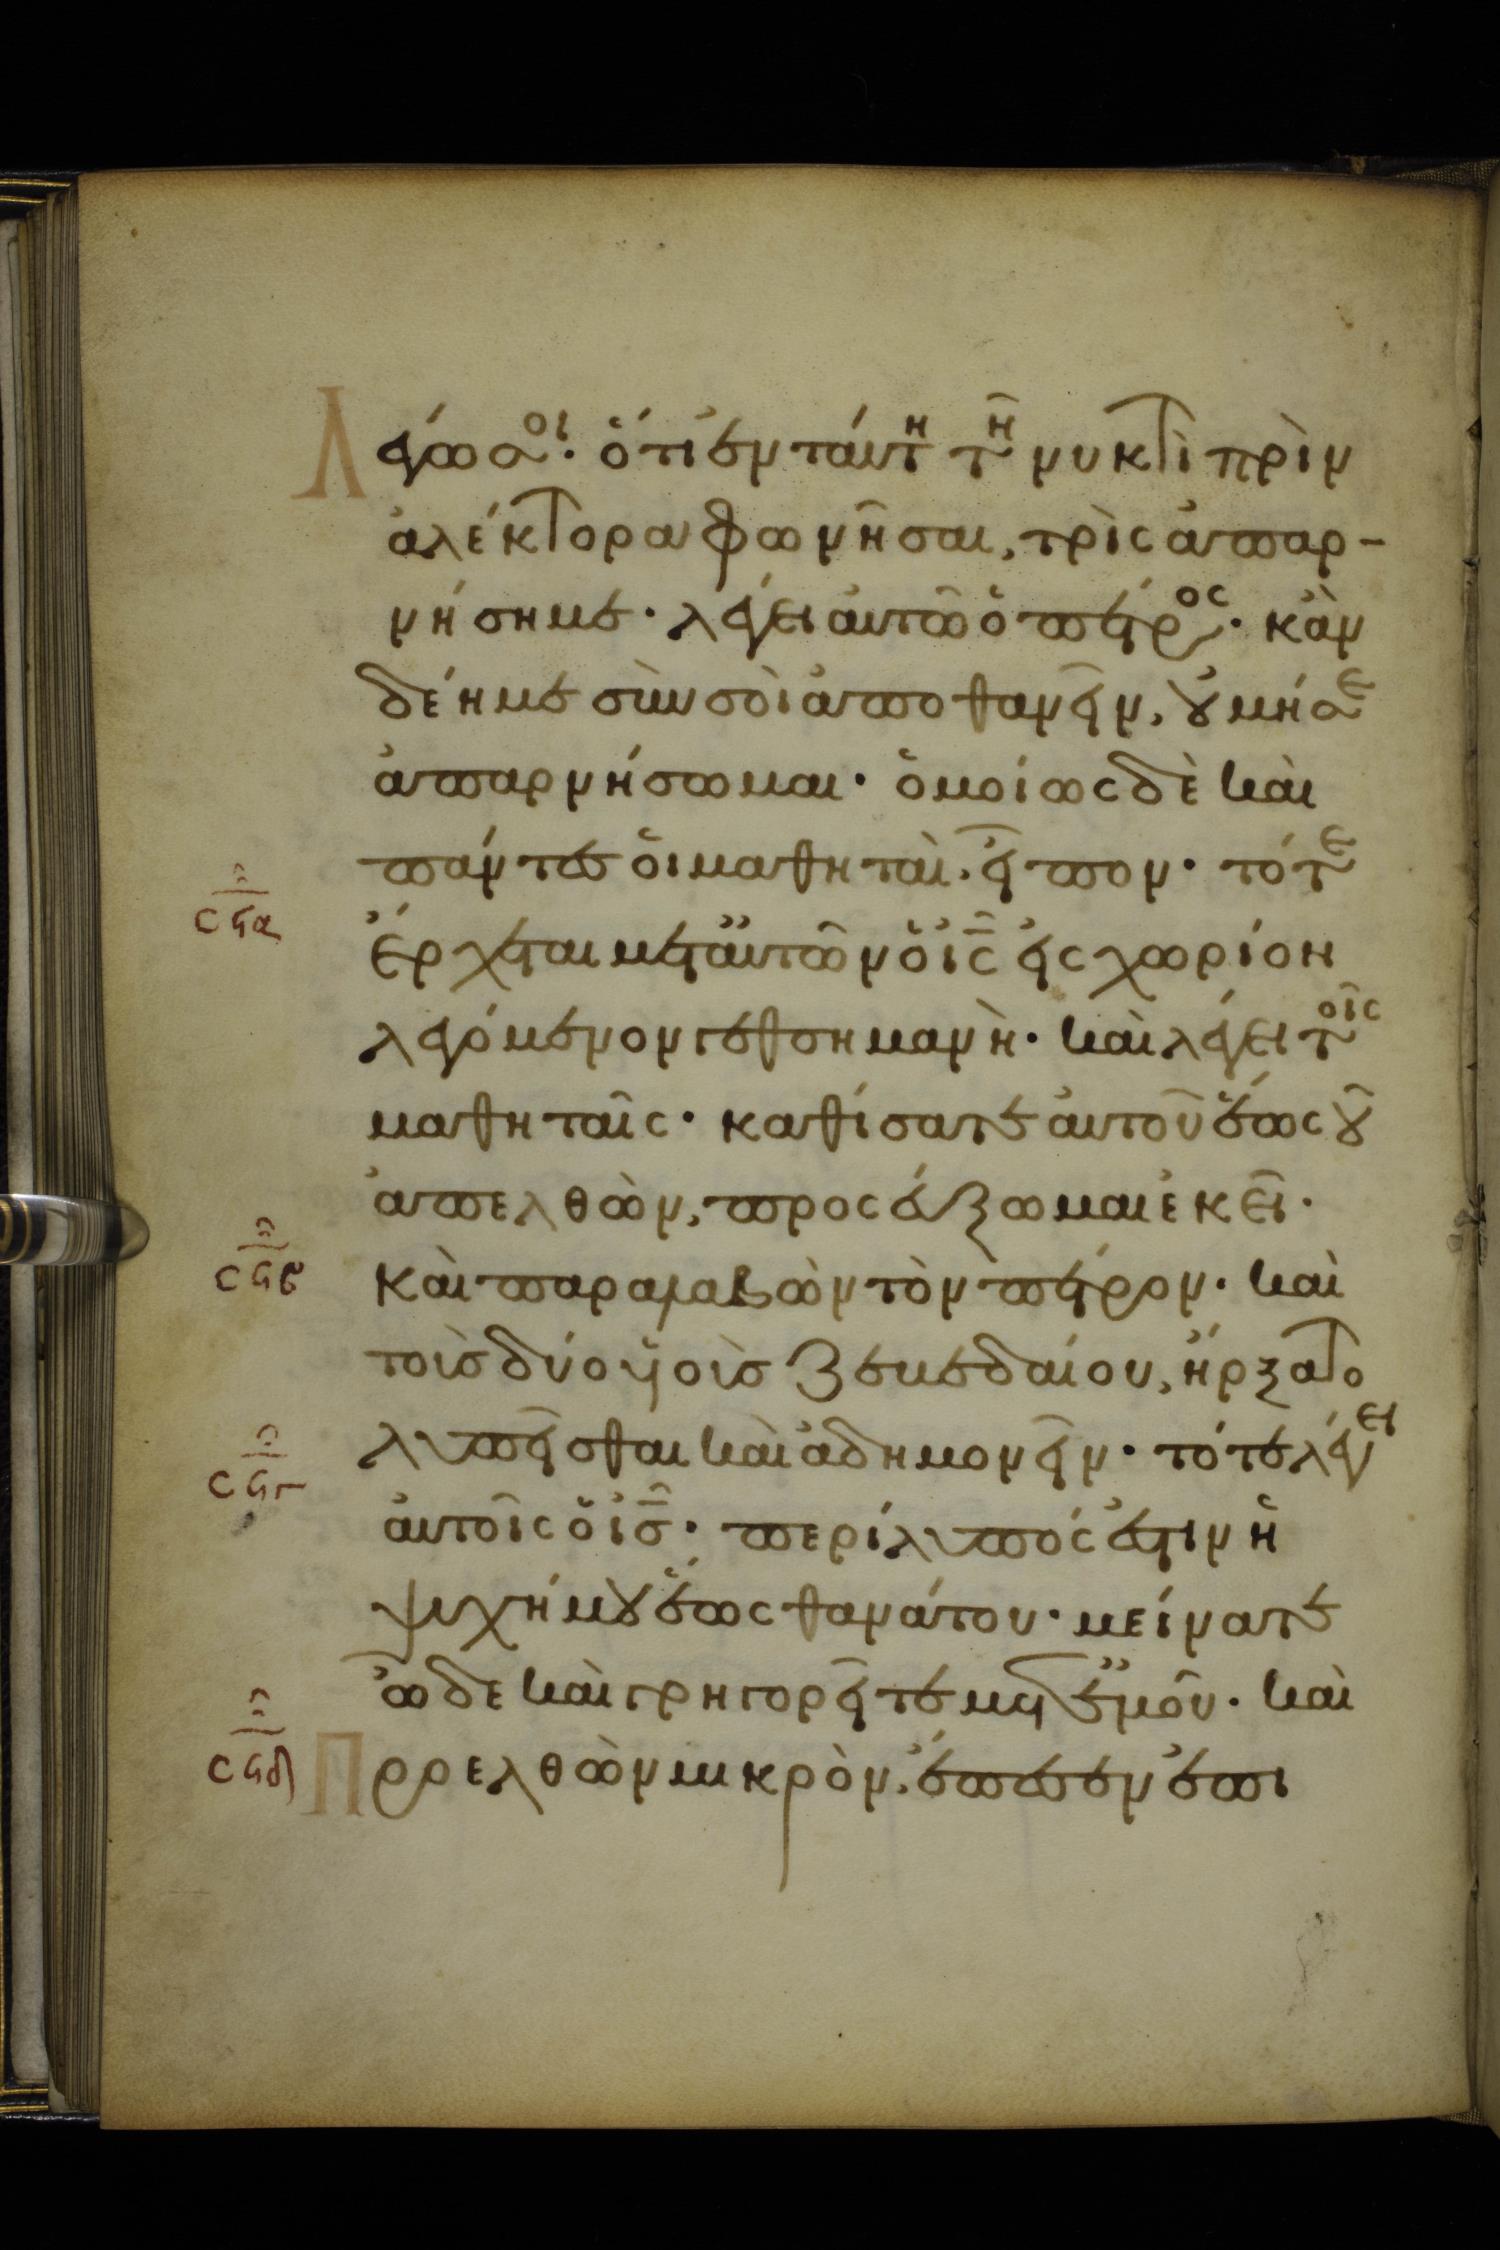 Λέγω σοι· ὅτι ἐν ταύτη τῆ νυκτὶ πρὶν
ἀλέκτορα φωνῆσαι, τρὶς ἀπαρ-
νήση με· λέγει αὐτῶ ὁ πέτρος· κἂν
δέη με σὺν σοὶ ἀποθανεῖν, οὐ μή σε
ἀπαρνήσωμαι· ὁμοίως δὲ καὶ
πάντες οἱ μαθηταὶ, εἶπον· τότε
ϲϟα
Ἔρχεται μετ' αὐτῶν ὁ ι̅ϲ̅ εἰς χωρίον
λεγόμενον γεθσημανὴ· καὶ λέγει τοῖς
μαθηταῖς· καθίσατε αὐτοῦ ἕως οὗ
ἀπελθὼν, προσεύξωμαι ἐκεῖ·
ϲϟβ
Καὶ παραλαβὼν τὸν πέτρον· καὶ
τοὺς δύο υἱοὺς ζεβεδαίου, ἤρξατο
λυπεῖσθαι καὶ ἀδημονεῖν· τότε λέγει
ϲϟγ
αὐτοῖς ὁ ι̅ϲ̅· περίλυπός ἐστιν ἡ
ψυχή μου ἕως θανάτου· μείνατε
ὧδε καὶ γρηγορεῖτε μετ' ἐμοῦ· καὶ
ϲϟδ
Προελθὼν μικρὸν, ἔπεσεν ἐπὶ